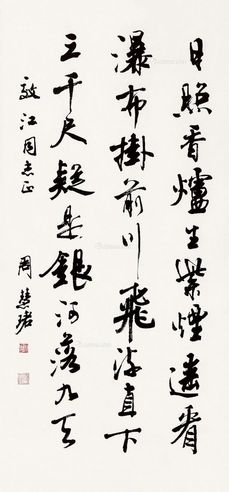 日照香爐生紫煙遙看
瀑布掛前川飛流直下
三千尺疑是銀河落九天
江同志正
周慧珺